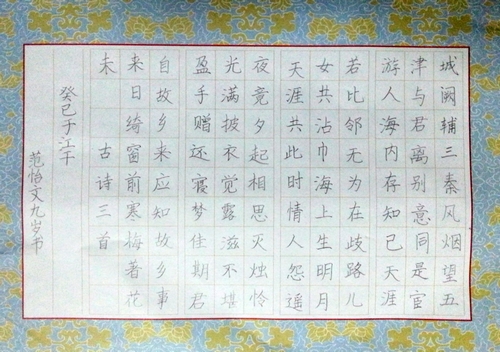 城阙辅三秦风烟望五
津与君离别意同是宦
游人海内存知己天涯
若比邻无为在歧路儿
女共沾巾海上生明月
天涯共此时情人怨遥
夜竟夕起相思灭烛怜
光满披衣觉露滋不堪
盈手赠还寝梦佳期君
自故乡来应知故乡事
来日绮窗前寒梅著花
未 古诗三首
癸巳于江干
范怡文九岁书